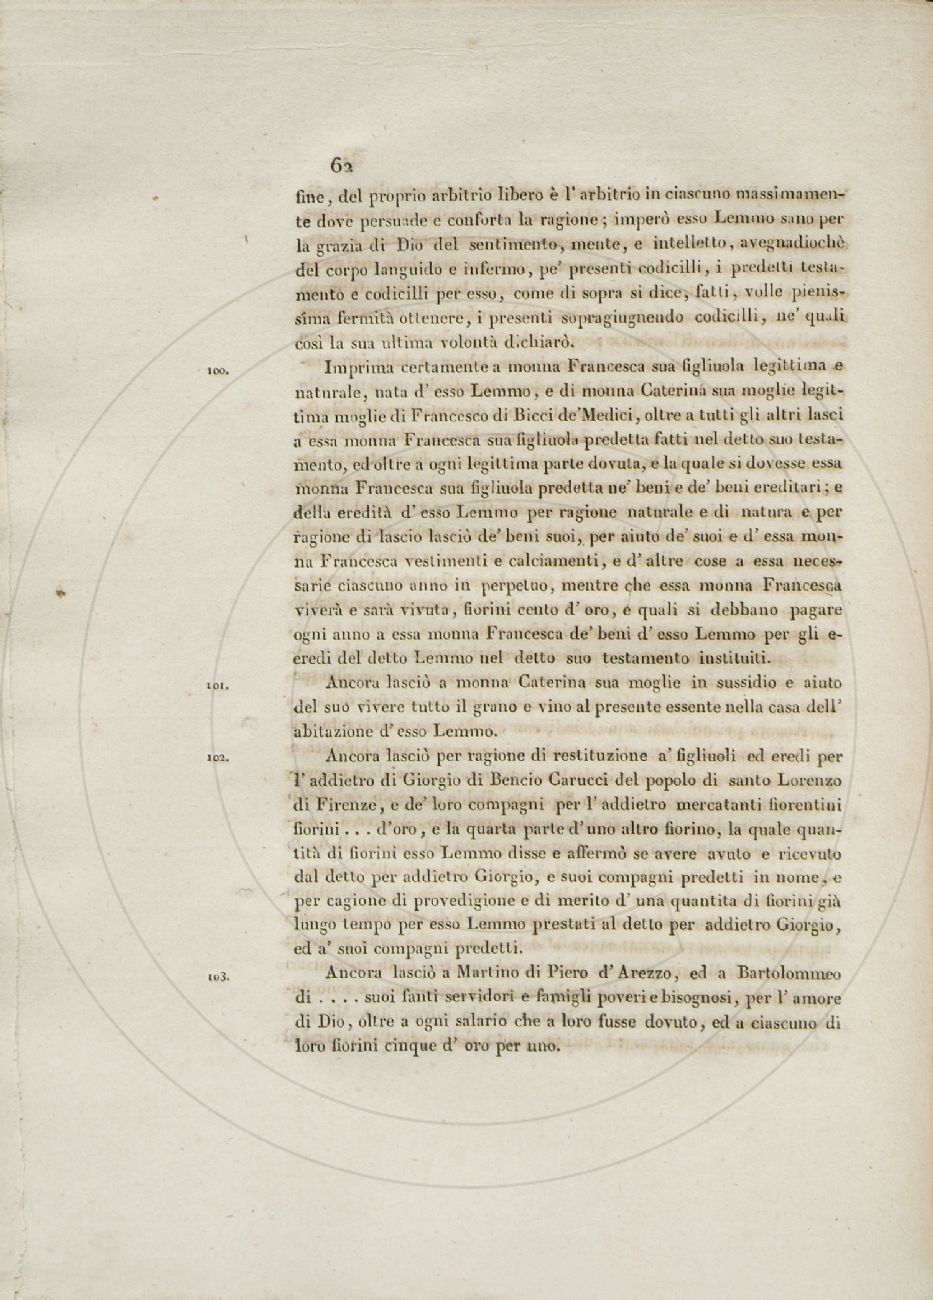 62
fine, del proprio arbitrio libero è l' arbitrio in ciascuno massimamen-
te dove persuade e conforta la ragione; imperò esso Lemmo sano per
la grazia di Dio del sentimento, mente, e intelletto, avegnadiochè
del corpo languido e infermo, pe' presenti codicilli, i predetti testa-
mento e codicilli per esso, come di sopra si dice, fatti, volle pienis-
sima fermità ottenere, i presenti sopragiugnendo codicilli, ne' quali
così la sua ultima volontà dichiarò.
100. Imprima certamente a monna Francesca sua figliuola legittima e
naturale, nata d' esso Lemmo, e di monna Caterina sua moglie legit-
tima moglie di Francesco di Bicci de'Medici, oltre a tutti gli altri lasci
a essa monna Francesca sua figliuola predetta fatti nel detto suo testa-
mento, ed oltre a ogni legittima parte dovuta, e la quale si dovesse essa
monna Francesca sua figliuola predetta ne' beni e de' beni ereditari; e
della eredità d' esso Lemmo per ragione naturale e di natura e per
ragione di lascio lasciò de' beni suoi, per aiuto de' suoi e d' essa mon-
na Francesca vestimenti e calciamenti, e d' altre cose a essa neces-
sarie ciascuno anno in perpetuo, mentre che essa monna Francesca
viverà e sarà vivuta, fiorini cento d' oro, e quali si debbano pagare
ogni anno a essa monna Francesca de' beni d' esso Lemmo per gli e-
eredi del detto Lemmo nel detto suo testamento instituiti.
101. Ancora lasciò a monna Caterina sua moglie in sussidio e aiuto
del suo vivere tutto il grano e vino al presente essente nella casa dell'
abitazione d' esso Lemmo.
102. Ancora lasciò per ragione di restituzione a' figliuoli ed eredi per
l' addietro di Giorgio di Bencio Carucci del popolo di santo Lorenzo
di Firenze, e de' loro compagni per l' addietro mercatanti fiorentini
fiorini . . . d'oro, e la quarta parte d'uno altro fiorino, la quale quan-
tità di fiorini esso Lemmo disse e affermò se avere avuto e ricevuto
dal detto per addietro Giorgio, e suoi compagni predetti in nome, e
per cagione di provedigione e di merito d' una quantita di fiorini già
lungo tempo per esso Lemmo prestati al detto per addietro Giorgio,
ed a' suoi compagni predetti.
103. Ancora lasciò a Martino di Piero d' Arezzo, ed a Bartolommeo
di . . . . suoi fanti servidori e famigli poveri e bisognosi, per l' amore
di Dio, oltre a ogni salario che a loro fusse dovuto, ed a ciascuno di
loro fiorini cinque d' oro per uno.